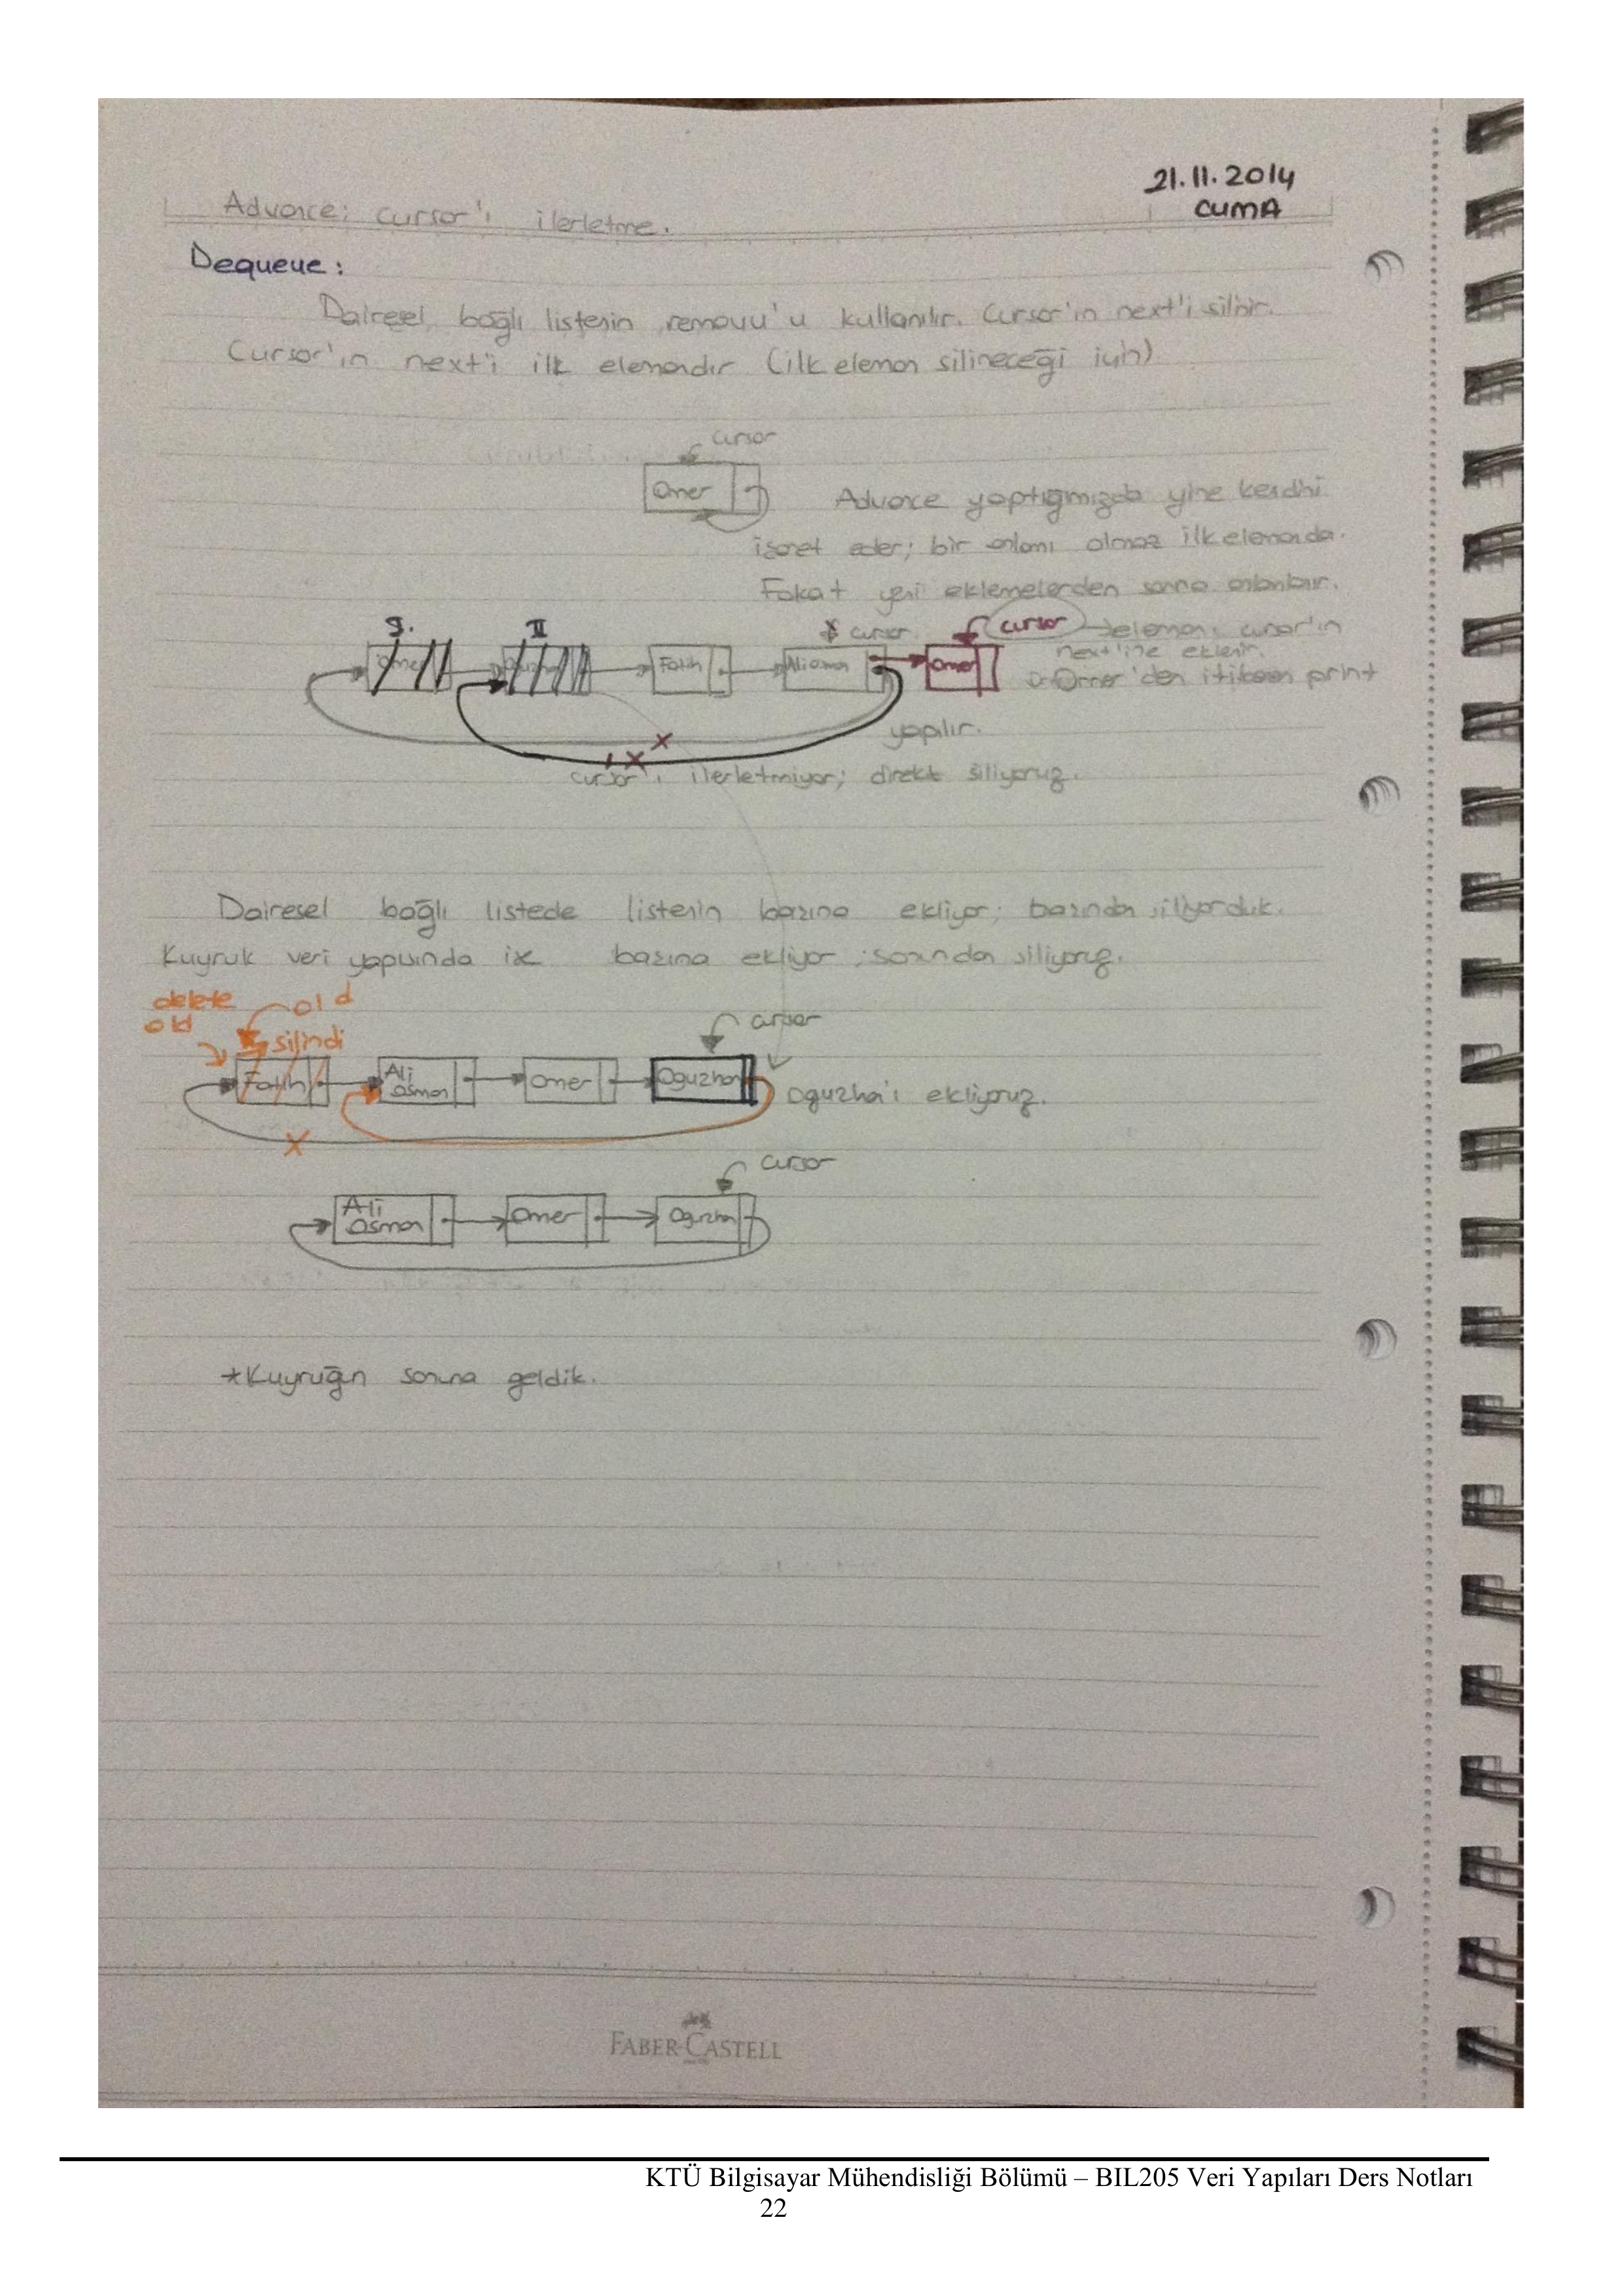 21.11.2014
CUMA
Advance: cursor'ı ilerletme.
Dequeue:
Dairesel bağlı listenin removu'u kullanılır. Cursor'ın next'i silinir.
Cursor'ın next'i ilk elemandır (ilk eleman silineceği için)
cursor
Omer
Advance yaptığımızda yine kendini
işaret eder; bir anlamı olmaz ilk elemanda.
Fakat yeni eklemelerden sonra anlamlıdır.
I. II cursor cursor elemanı cursor'ın
next'ine eklenir.
Omer Fatih Ali osman Omer Omer'den itibaren print
yapılır.
cursor'ı ilerletmiyor; direkt siliyoruz.
Dairesel bağlı listede listenin başına ekliyor; başından siliyorduk.
Kuyruk veri yapısında ise başına ekliyor; sonundan siliyoruz.
delete old
old silindi
cursor
Fatih Ali osman Omer Oguzhan Oguzha'ı ekliyoruz.
cursor
Ali osman Omer Oguzhan
*Kuyruğun sonuna geldik.
FABER-CASTELL
KTÜ Bilgisayar Mühendisliği Bölümü – BIL205 Veri Yapıları Ders Notları
22